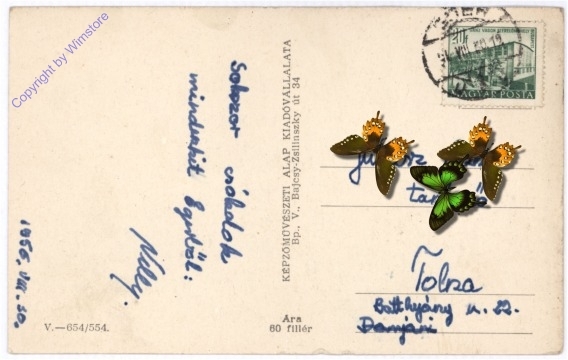 Copyright by Wimstore
Sokszor csókolok
mindenkit Egerből:
Nelly.
1956. VIII. 30.
V.—654/554.
KÉPZŐMŰVÉSZETI ALAP KIADÓVÁLLALATA
Bp., V., Bajcsy-Zsilinszky út 34
Ara
60 fillér
MAGYAR POSTA
Tolna
Batthyány u. 22.